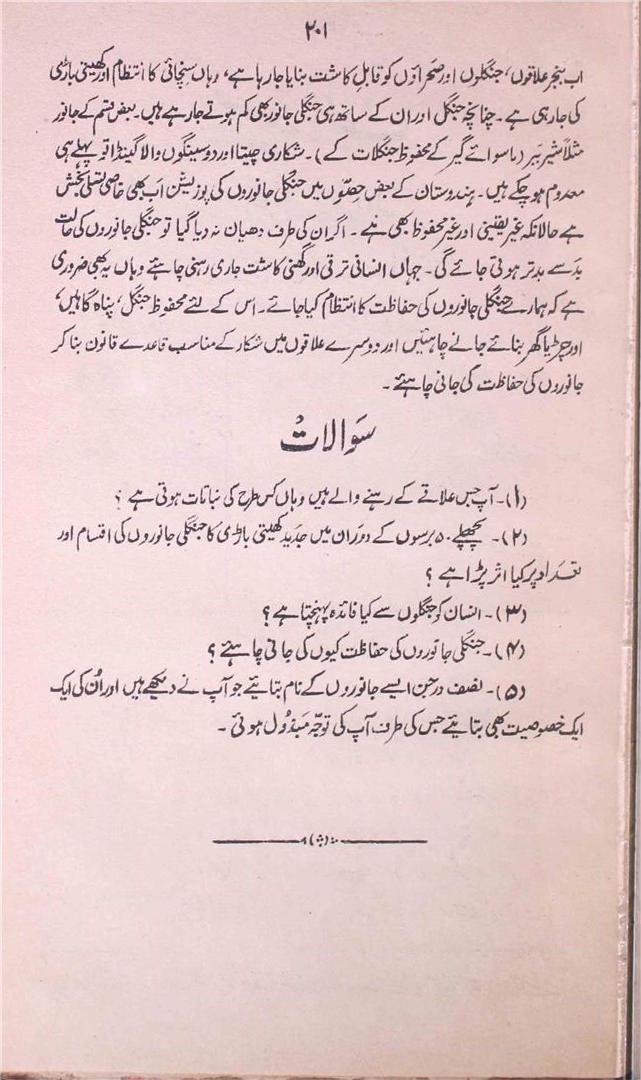 ۲۰۱
اب بنجر علاقوں، جنگلوں اور صحراؤں کو قابلِ کاشت بنایا جارہا ہے، وہاں سنچائی کا انتظام اور کھیتی باڑی
کی جارہی ہے۔ چنانچہ جنگل اور ان کے ساتھ ہی جنگلی جانور بھی کم ہوتے جارہے ہیں۔ بعض قسم کے جانور
مثلاً شیر ببر (ماسوائے گیر کے محفوظ جنگلات کے)۔ شکاری چیتا اور دو سینگوں والا گینڈا تو پہلے ہی
معدوم ہوچکے ہیں۔ ہندوستان کے بعض حصّوں میں جنگلی جانوروں کی پوزیشن اب بھی خاصی تسلی بخش
ہے حالانکہ غیر یقینی اور غیر محفوظ بھی ہے۔ اگر ان کی طرف دھیان نہ دیا گیا تو جنگلی جانوروں کی حالت
بد سے بدتر ہوتی جائے گی۔ جہاں انسانی ترقی اور گھنی کاشت جاری رہنی چاہئے وہاں یہ بھی ضروری
ہے کہ ہمارے جنگلی جانوروں کی حفاظت کا انتظام کیا جائے۔ اس کے لئے محفوظ جنگل، پناہ گاہیں،
اور چڑیا گھر بنائے جانے چاہئیں اور دوسرے علاقوں میں شکار کے مناسب قاعدے قانون بنا کر
جانوروں کی حفاظت کی جانی چاہئے۔
سَوالات
(۱)۔ آپ جس علاقے کے رہنے والے ہیں وہاں کس طرح کی نباتات ہوتی ہے؟
(۲)۔ پچھلے ۵۰ برسوں کے دَوران میں جدید کھیتی باڑی کا جنگلی جانوروں کی اقسام اور
تعداد پر کیا اثر پڑا ہے؟
(۳)۔ انسان کو جنگلوں سے کیا فائدہ پہنچتا ہے؟
(۴)۔ جنگلی جانوروں کی حفاظت کیوں کی جاتی چاہئے؟
(۵)۔ نصف درجن ایسے جانوروں کے نام بتائیے جو آپ نے دیکھے ہیں اور اُن کی ایک
ایک خصوصیت بھی بتائیے جس کی طرف آپ کی توجّہ مَبذُول ہوئی۔